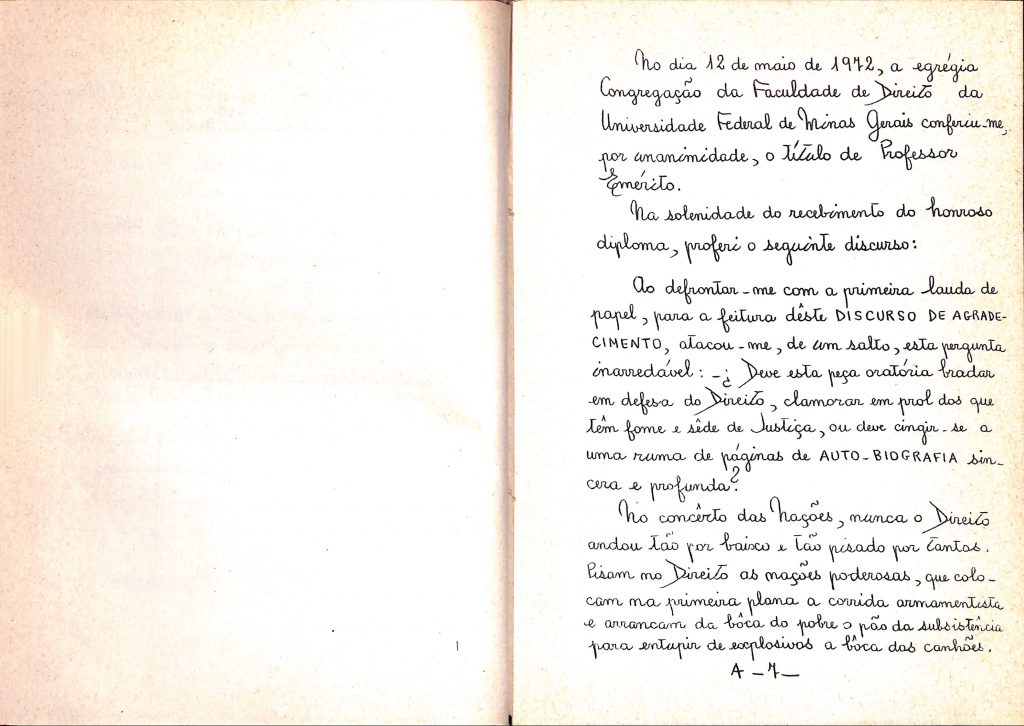 No dia 12 de maio de 1972, a egrégia
Congregação da Faculdade de Direito da
Universidade Federal de Minas Gerais conferiu-me,
por unanimidade, o título de Professor
Emérito.
Na solenidade do recebimento do honroso
diploma, proferi o seguinte discurso:
Ao defrontar-me com a primeira lauda de
papel, para a feitura dêste DISCURSO DE AGRADE-
CIMENTO, atacou-me, de um salto, esta pergunta
inarredável: -¿ Deve esta peça oratória bradar
em defesa do Direito, clamorar em prol dos que
têm fome e sêde de Justiça, ou deve cingir-se a
uma ruma de páginas de AUTO-BIOGRAFIA sin-
cera e profunda?
No concêrto das Nações, nunca o Direito
andou tão por baixo e tão pisado por tantos.
Pisam no Direito as nações poderosas, que colo-
cam na primeira plana a corrida armamentista
e arrancam da bôca do pobre o pão da subsistência
para entupir de explosivos a bôca das canhões.
A -7-